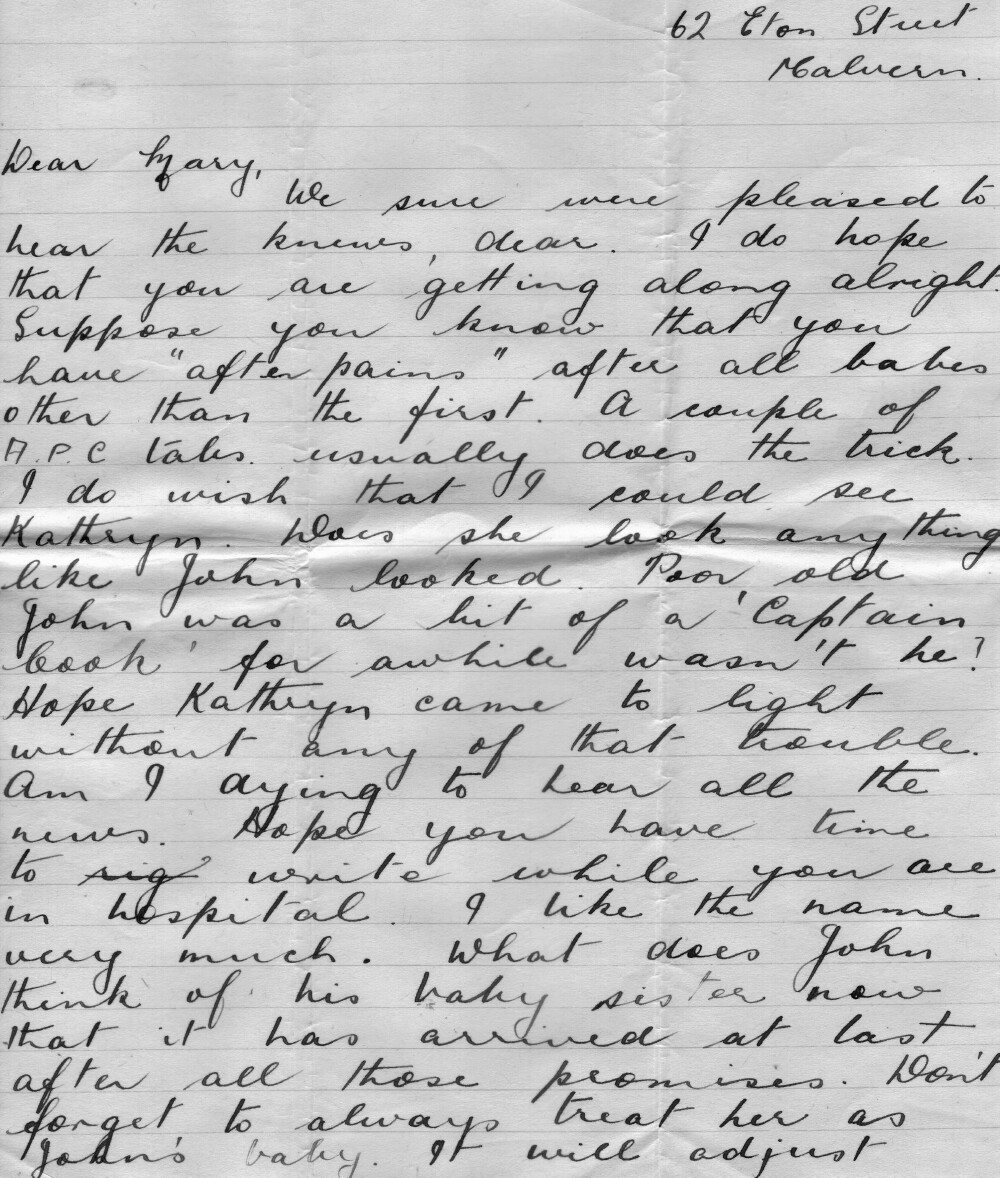 62 Eton Street
Malvern.
Dear Mary,
We sure were pleased to
hear the knews, dear. I do hope
that you are getting along alright.
Suppose you know that you
have "after pains" after all babes
other than the first. A couple of
A.P.C tabs. usually does the trick.
I do wish that I could see
Kathryn. Does she look anything
like John looked. Poor old
John was a bit of a 'Captain
Cook' for awhile wasn't he?
Hope Kathryn came to light
without any of that trouble.
Am I dying to hear all the
news. Hope you have time
to write while you are
in hospital. I like the name
very much. What does John
think of his baby sister now
that it has arrived at last
after all those promises. Don't
forget to always treat her as
John's baby. It will adjust